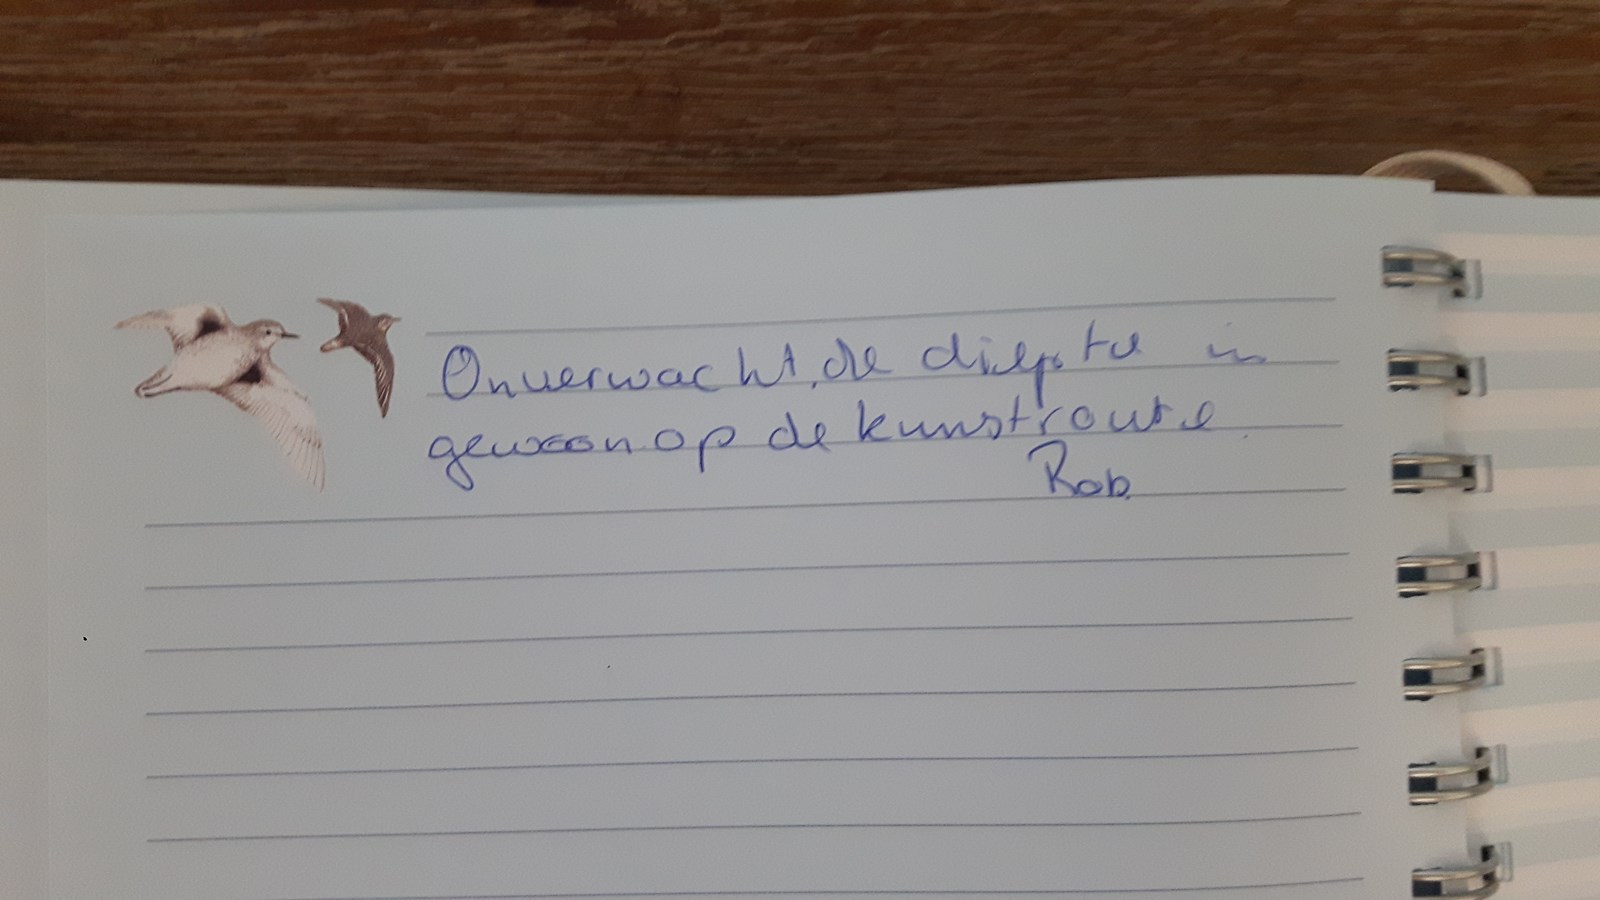 Onverwacht, de diepte in
gewoon op de kunstroute
Rob